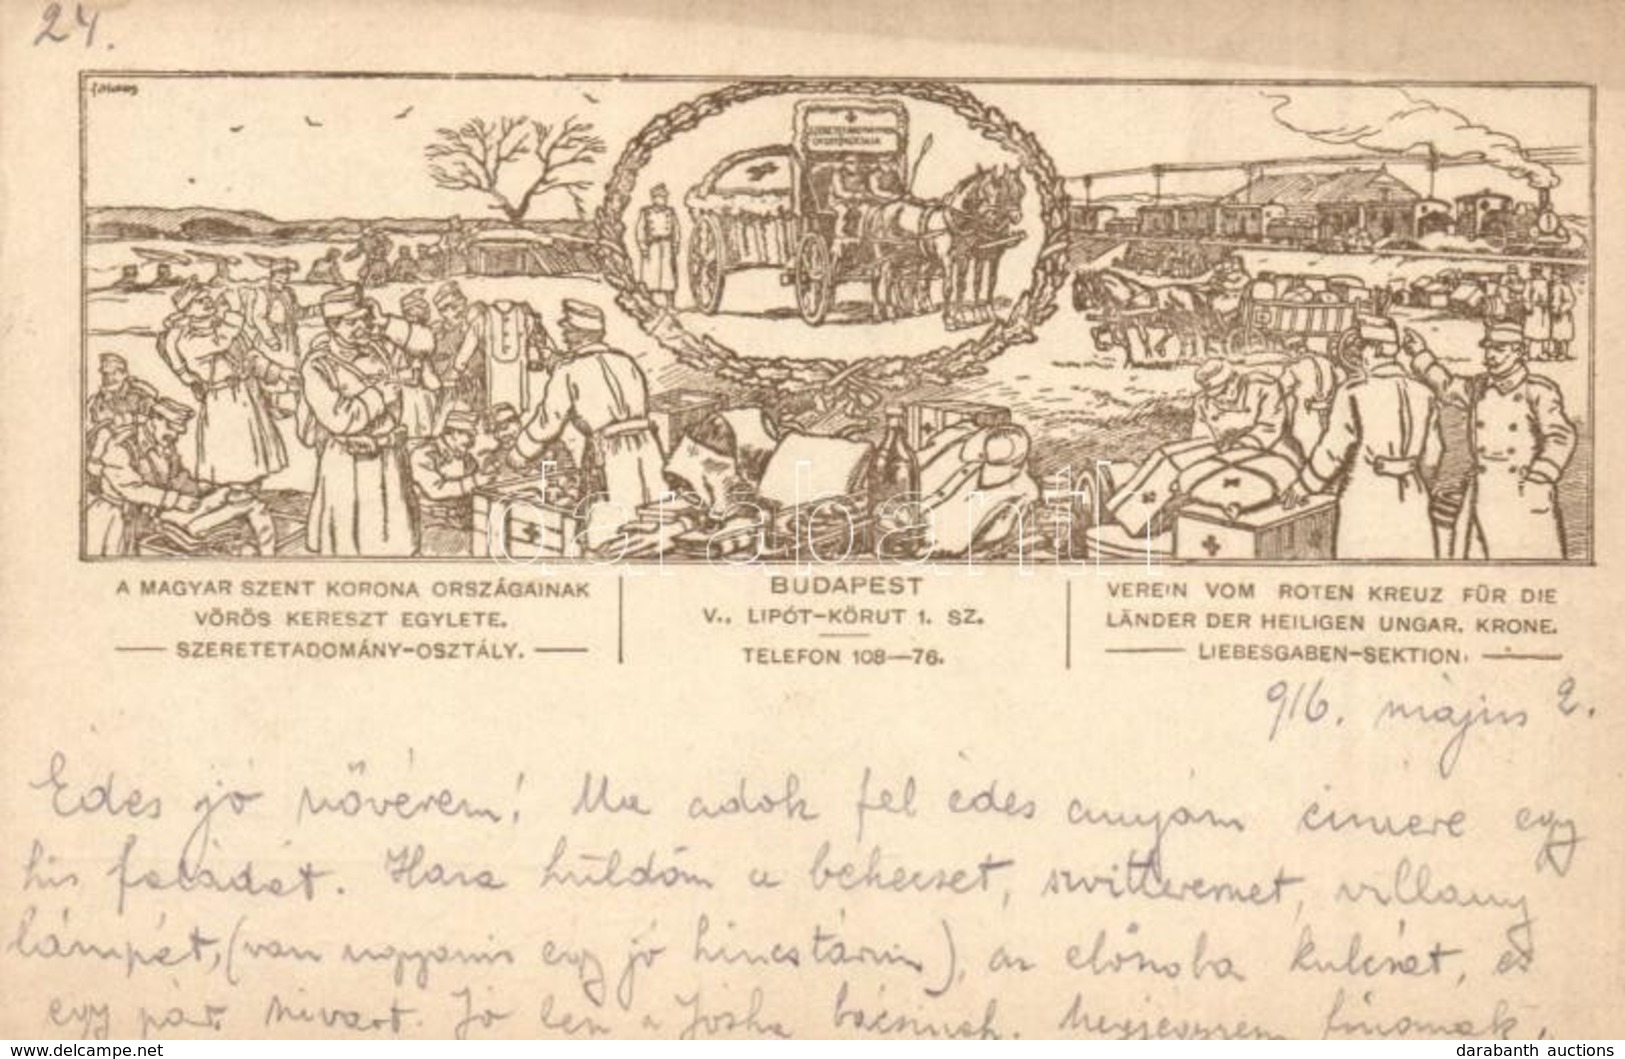 24.
A MAGYAR SZENT KORONA ORSZÁGAINAK
VÖRÖS KERESZT EGYLETE.
SZERETETADOMÁNY-OSZTÁLY.
BUDAPEST
V., LIPÓT-KÖRUT 1. SZ.
TELEFON 108—76.
VEREIN VOM ROTEN KREUZ FÜR DIE
LÄNDER DER HEILIGEN UNGAR. KRONE.
LIEBESGABEN-SEKTION.
darabanth
916. május 2.
Édes jó nővérem! Ma adok fel édes anyám címére egy
kis faládát. Haza küldöm a bekecset, szvitteremet, villany
lámpát, (van ugyanis egy jó kincstárim), az előszoba kulcsát, és
egy pár szivart. Jó lesz a Jóska bácsinak. Megjegyzem finomak,
delcampe.net
darabanth auctions